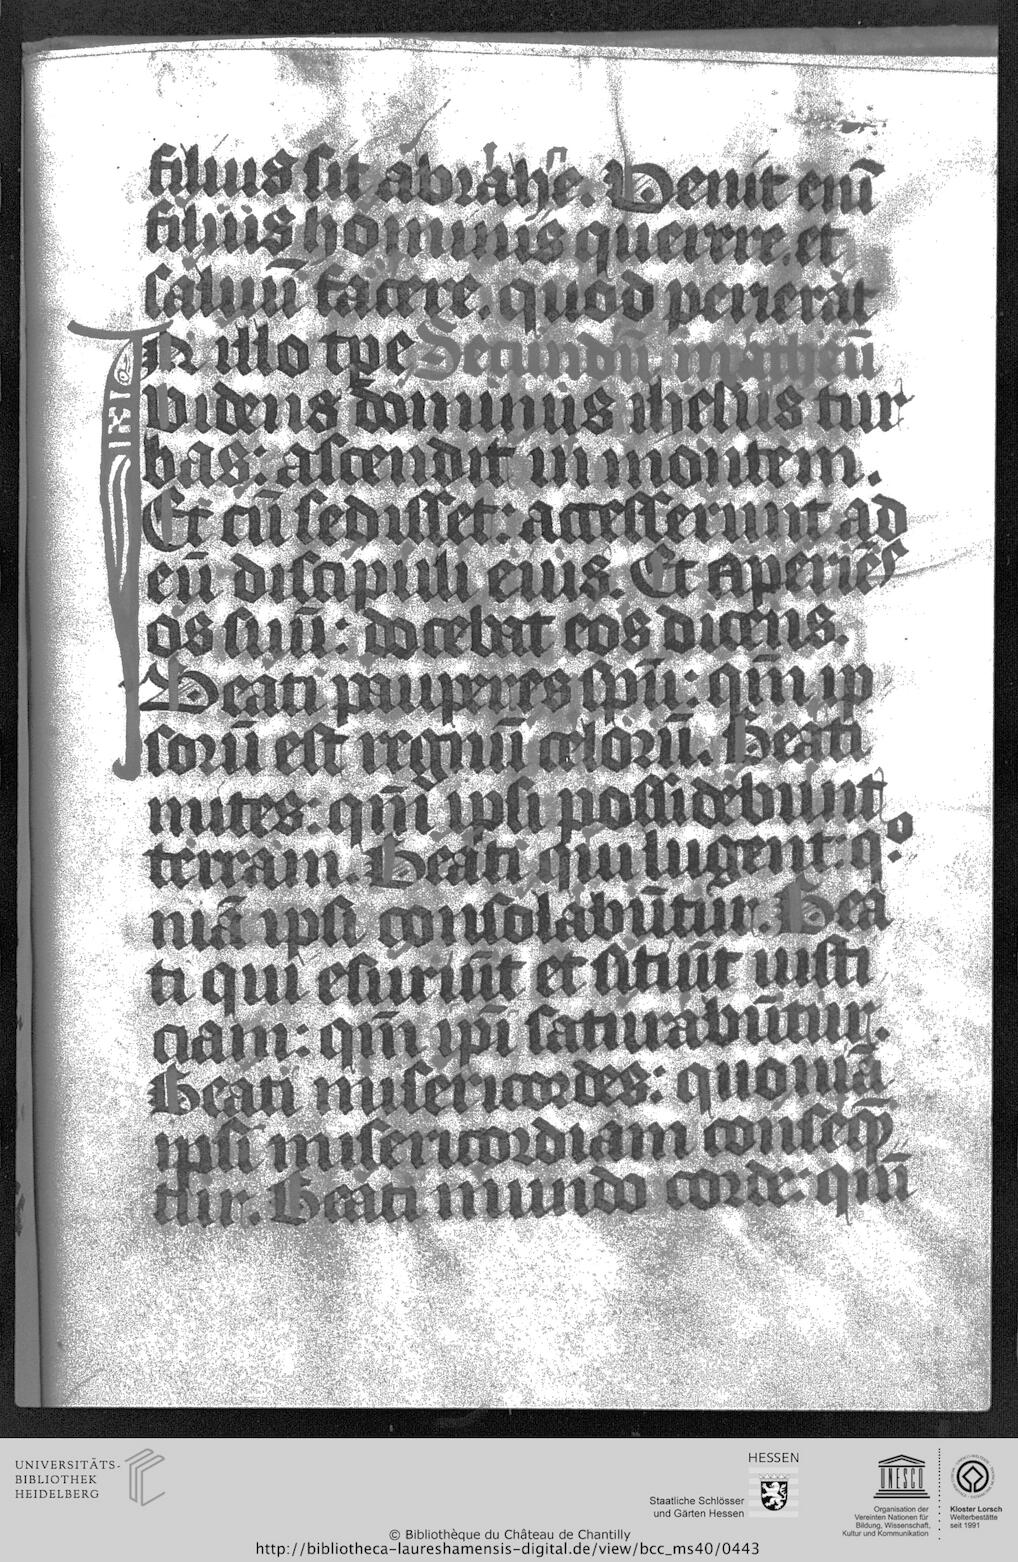 filius sit abrahe. Venit eni᷈
filius hominis querere et
saluū facere. quod perierat
In illo tp̄e Secundū matheū
videns dominus ihesus tur
bas: ascendit in montem.
Et cū sedisset: accesserunt ad
eū discipuli eius. Et aperiēs
os suū: docebat eos dicens.
Beati pauperes spū: qm̄ ip
sorū est regnū celorū. Beati
mites: qm̄ ipsi possidebunt
terram. Beati qui lugent: qͦ
niā ipsi consolabūtur. Bea
ti qui esuriūt et sitiūt iusti
ciam: qm̄ ipi̅ saturabūtur.
Beati misericordes: quoniā
ipsi misericordiam conseq̄
tur. Beati mundo corde: qm̄
UNIVERSITÄTS-
BIBLIOTHEK
HEIDELBERG
HESSEN
Staatliche Schlösser
und Gärten Hessen
UNESCO
Organisation der
Vereinten Nationen für
Bildung, Wissenschaft,
Kultur und Kommunikation
Kloster Lorsch
Welterbestätte
seit 1991
© Bibliothèque du Château de Chantilly
http://bibliotheca-laureshamensis-digital.de/view/bcc_ms40/0443